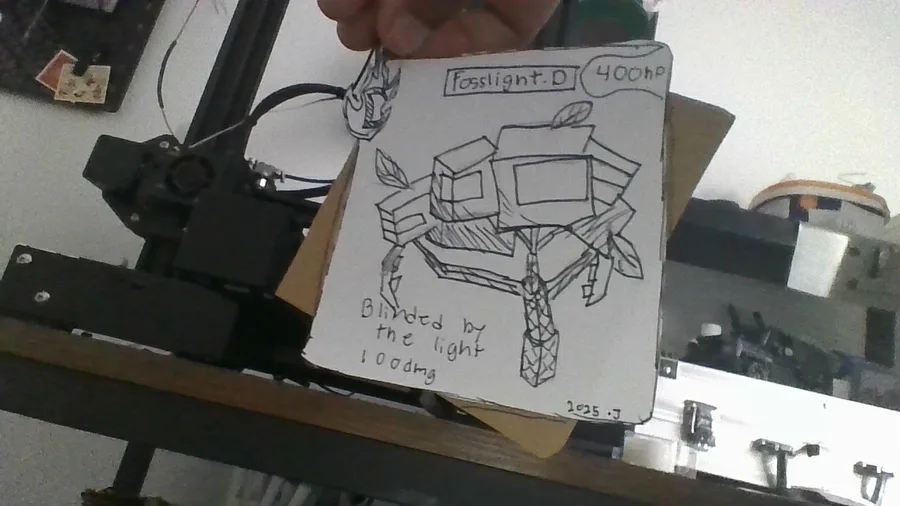 Fosslight.D
400hp
Blinded by
the light
100dmg
2025.J